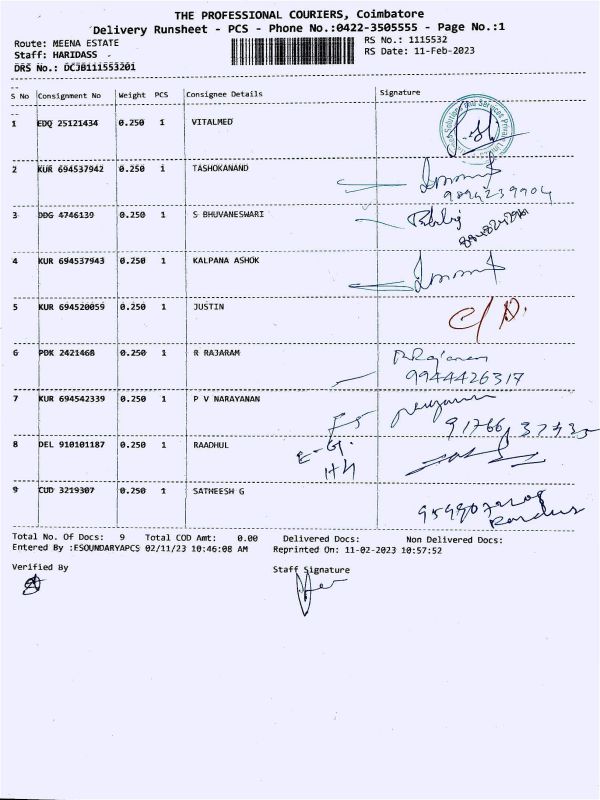 THE PROFESSIONAL COURIERS, Coimbatore
Delivery Runsheet - PCS - Phone No.:0422-3505555 - Page No.:1
Route: MEENA ESTATE
RS No.: 1115532
Staff: HARIDASS
RS Date: 11-Feb-2023
DRS No.: DCJB11155320i
S No Consignment No Weight PCS Consignee Details Signature
1 EDQ 25121434 0.250 1 VITALMED
2 KUR 694537942 0.250 1 TASHOKANAND
9894239904
3 DDG 4746139 0.250 1 S BHUVANESWARI
4 KUR 694537943 0.250 1 KALPANA ASHOK
5 KUR 694520059 0.250 1 JUSTIN
6 PDK 2421468 0.250 1 R RAJARAM
9944426317
7 KUR 694542339 0.250 1 P V NARAYANAN
8 DEL 910101187 0.250 1 RAADHUL
9 CUD 3219307 0.250 1 SATHEESH G
Total No. Of Docs: 9 Total COD Amt: 0.00 Delivered Docs: Non Delivered Docs:
Entered By :ESOUNDARYAPCS 02/11/23 10:46:08 AM Reprinted On: 11-02-2023 10:57:52
Verified By
Staff Signature